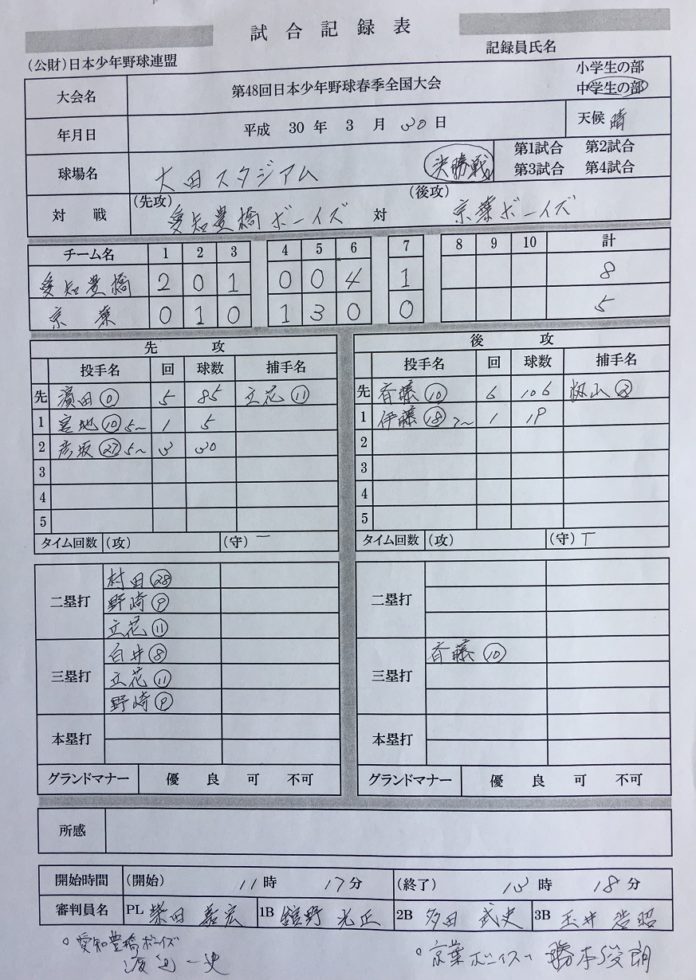 試合記録表
(公財)日本少年野球連盟
記録員氏名
大会名 第48回日本少年野球春季全国大会 小学生の部 中学生の部
年月日 平成 30 年 3 月 30 日 天候 晴
球場名 大田スタジアム 決勝戦 第1試合 第2試合
第3試合 第4試合
対戦 (先攻) 愛知豊橋ボーイズ 対 (後攻) 京葉ボーイズ
チーム名 1 2 3 4 5 6 7 8 9 10 計
愛知豊橋 2 0 1 0 0 4 1 8
京葉 0 1 0 1 3 0 0 5
先攻 後攻
投手名 回 球数 捕手名 投手名 回 球数 捕手名
先 濱田⓪ 5 85 立花⑪ 先 斉藤⑩ 6 106 山
1 宮地⑩5~ 1 5 1 伊藤⑱7~ 1 19
2 彦坂 5~ 3 30 2
3 3
4 4
5 5
タイム回数 (攻) (守) 一 タイム回数 (攻) (守) T
二塁打 村田㉘ 二塁打
野崎⑨
立花⑪
三塁打 白井⑧ 三塁打 斉藤⑩
立花⑪
野崎⑨
本塁打 本塁打
グランドマナー 優 良 可 不可 グランドマナー 優 良 可 不可
所感
開始時間 (開始) 11時 17分 (終了) 13時 18分
審判員名 PL 柴田 宏 1B 野 光正 2B 多田 武史 3B 玉井 浩昭
○愛知豊橋ボーイズ ○京葉ボーイズ
渡辺一史 勝本俊朗